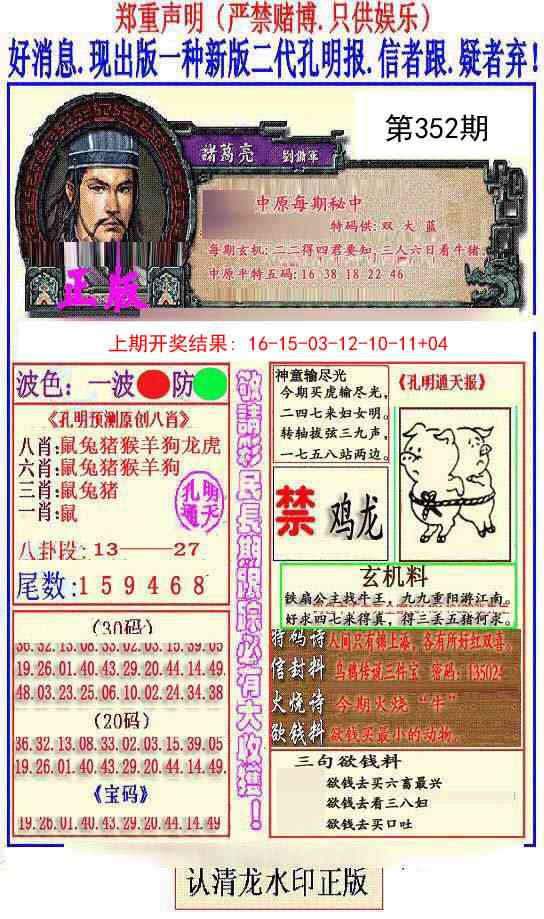 郑重声明（严禁赌博.只供娱乐）
好消息.现出版一种新版二代孔明报.信者跟.疑者弃!
第352期
諸葛亮 劉備軍
中原每期秘中
特码供:双 大 蓝
每期玄机:二二得四君要知,三人六日看牛猪.
中原平特五码:16 38 18 22 46
正版
上期开奖结果: 16-15-03-12-10-11+04
波色: 一波 防
《孔明预测原创八肖》
八肖:鼠兔猪猴羊狗龙虎
六肖:鼠兔猪猴羊狗
三肖:鼠兔猪
一肖:鼠
孔明
通天
八卦段:13——27
尾数:159468
(30码)
36.32.13.08.33.02.03.15.39.05
19.26.01.40.43.29.20.44.14.49
48.03.23.25.06.10.02.24.34.38
(20码)
36.32.13.08.33.02.03.15.39.05
19.26.01.40.43.29.20.44.14.49
《宝码》
19.26.01.40.43.29.20.44.14.49
敬請彩民長期跟踪必有大收獲!
神童输尽光
今期买虎输尽光,
二四七来妇女明。
转轴拔弦三九声,
一七五八站两边。
《孔明通天报》
禁 鸡龙
玄机料
铁扇公主找牛王, 九九重阳游江南。
好求四七来得真, 得三丢五猪何求。
特码诗 人间只有锦上添, 各有所好红双喜。
信封料 乌鸦传说三件宝 密码: 135024
火烧诗 今期火烧“牛”
欲钱料 欲钱买最小的动物.
三句欲钱料
欲钱去买六畜最兴
欲钱去看三八妇
欲钱去买口吐
认清龙水印正版